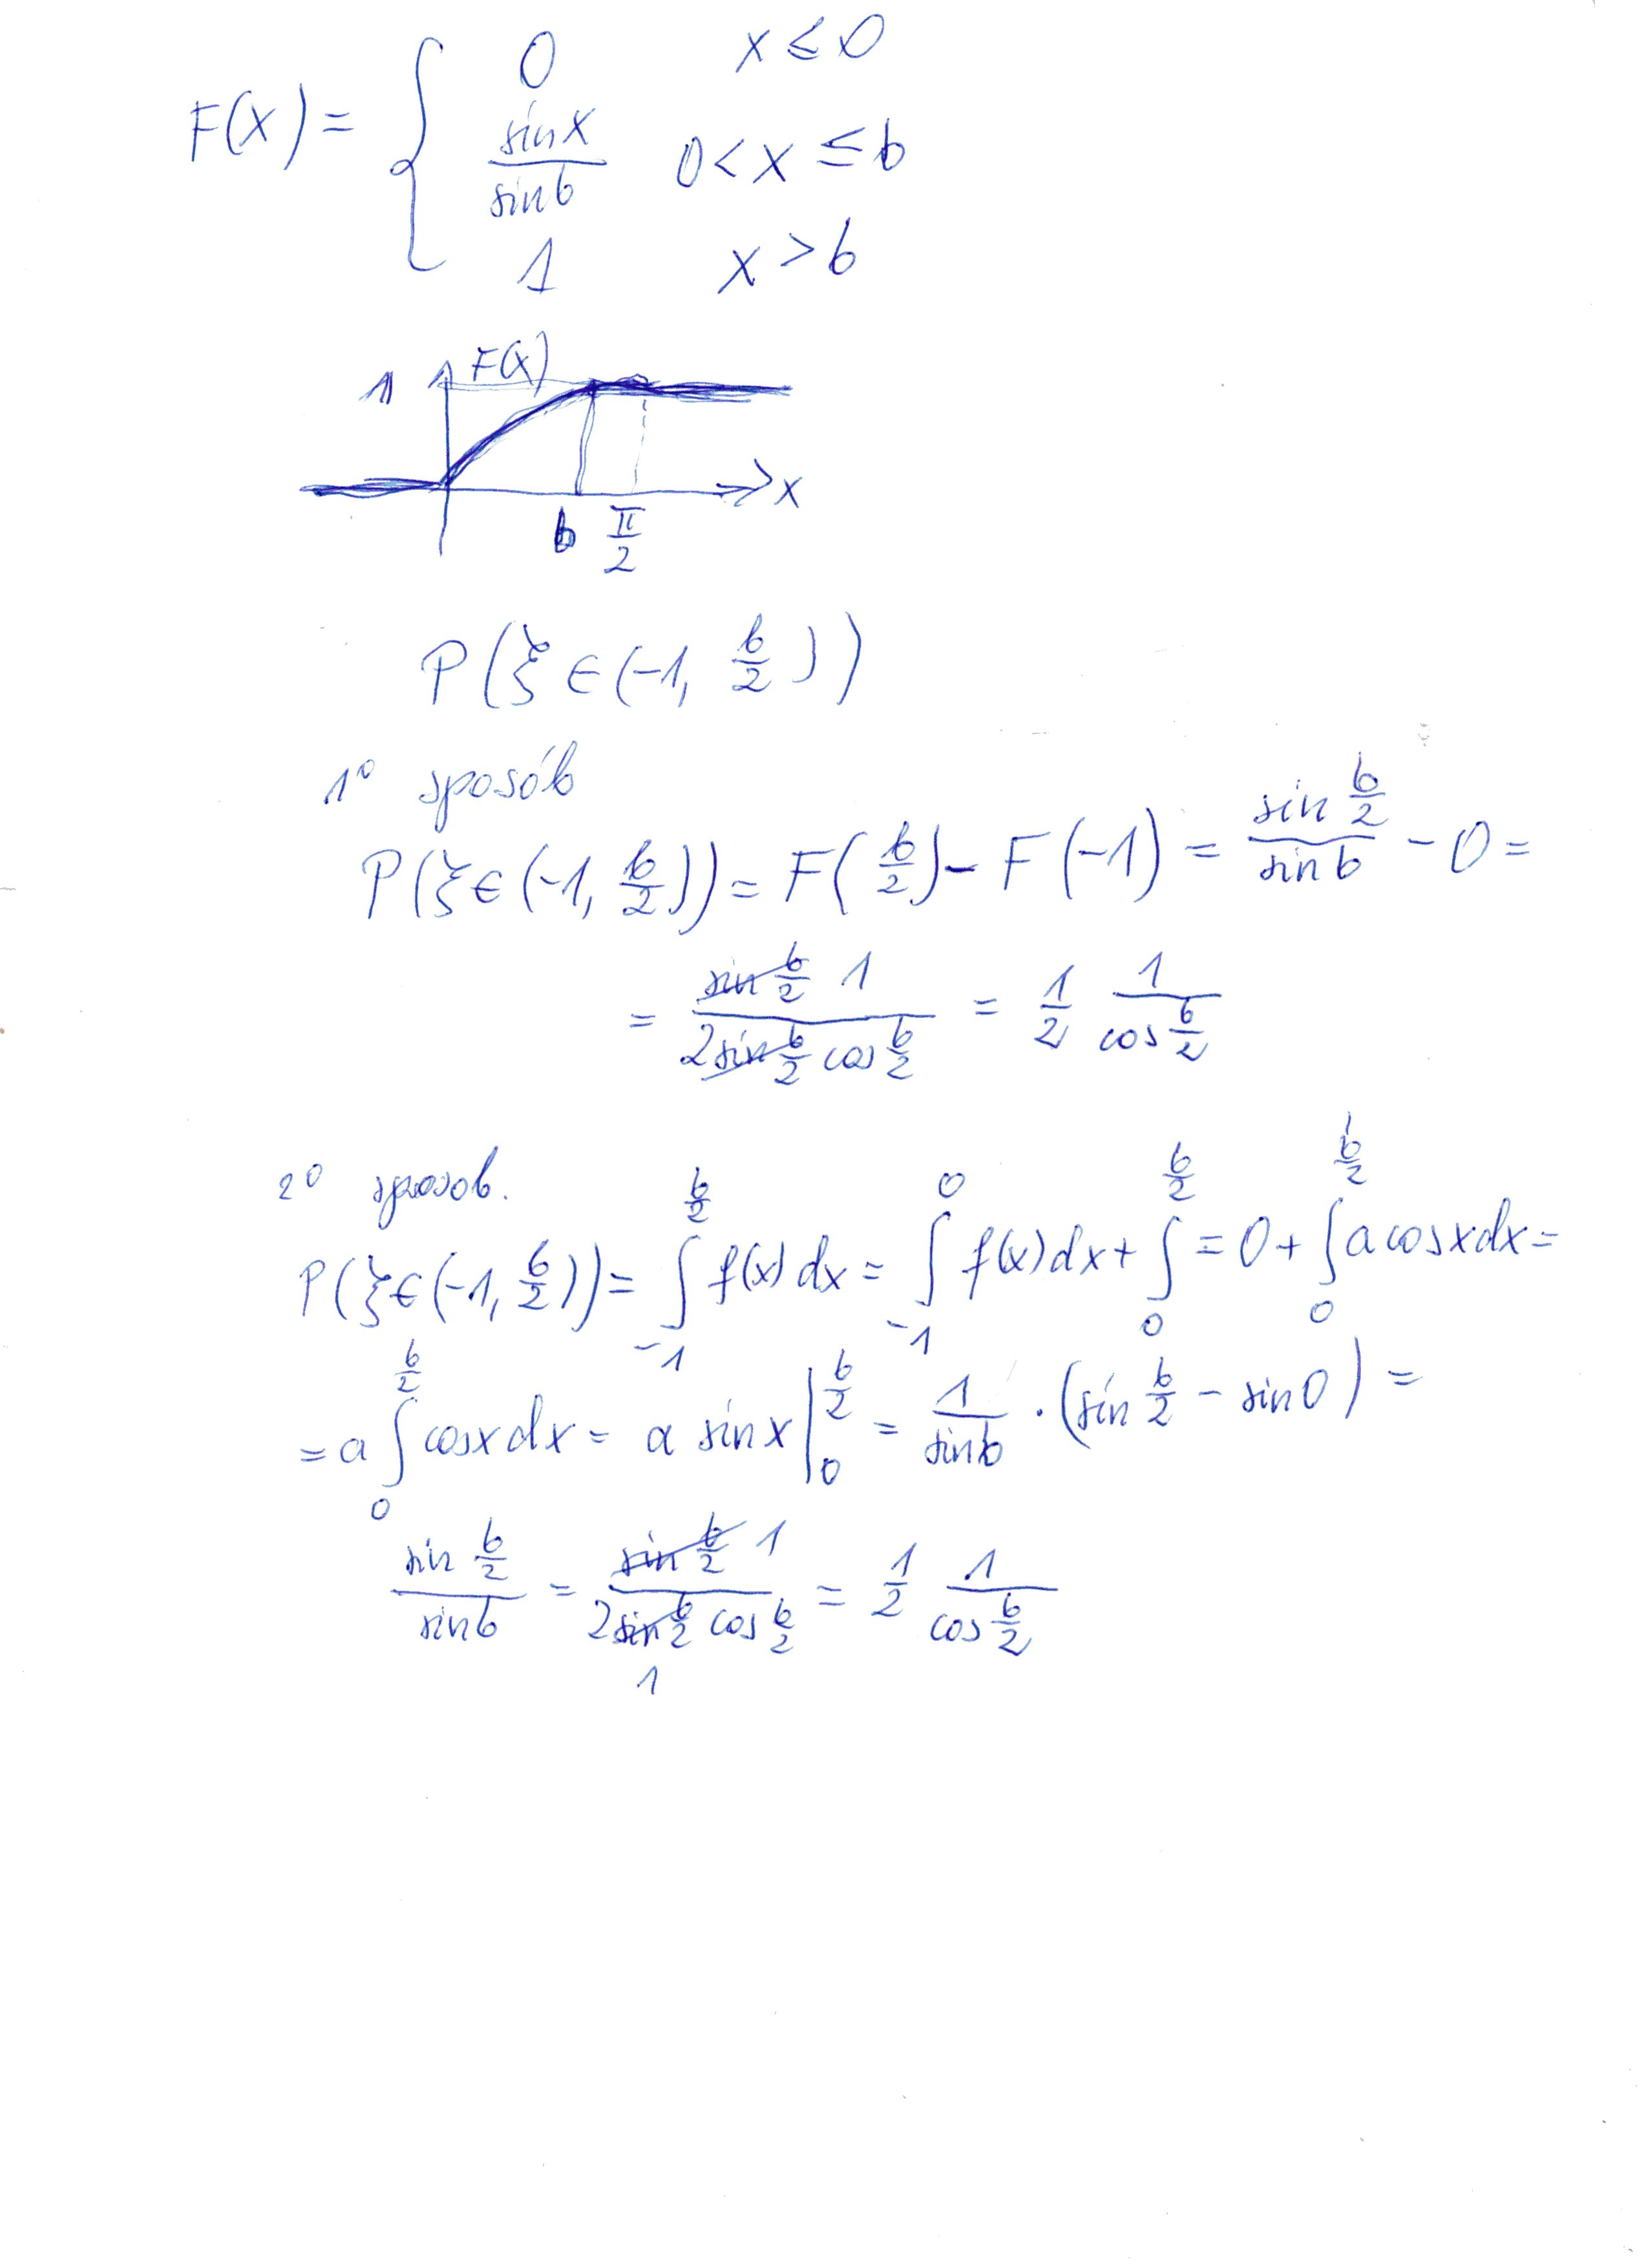 F(x) = { 0 x ≤ 0
sin x / sin b 0 < x ≤ b
1 x > b
1 F(x)
x
b π/2
P(ξ ∈ (-1, b/2))
1° sposób
P(ξ ∈ (-1, b/2)) = F(b/2) - F(-1) = sin b/2 / sin b - 0 =
= sin b/2 1 / 2 sin b/2 cos b/2 = 1/2 1 / cos b/2
2° sposob.
P(ξ ∈ (-1, b/2)) = ∫_{-1}^{b/2} f(x) dx = ∫_{-1}^{0} f(x) dx + ∫_{0}^{b/2} = 0 + ∫_{0}^{b/2} a cos x dx =
= a ∫_{0}^{b/2} cos x dx = a sin x |_{0}^{b/2} = 1 / sin b · (sin b/2 - sin 0) =
sin b/2 / sin b = sin b/2 1 / 2 sin b/2 cos b/2 = 1/2 1 / cos b/2
1